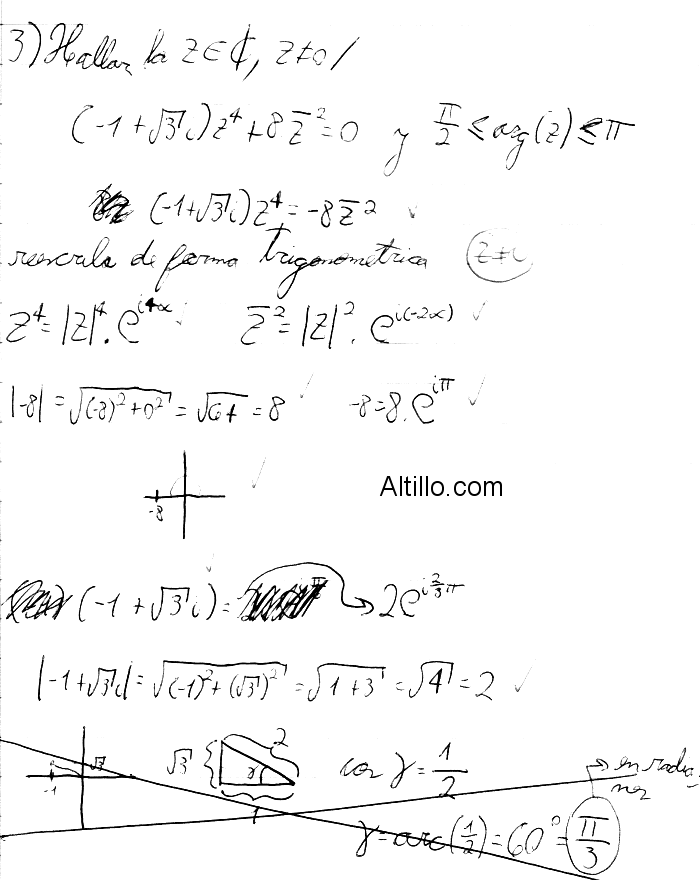 3) Hallar los z ∈ ℂ, z ≠ 0 /
(-1 + √3 i) z⁴ + 8 z̄² = 0 y π/2 ≤ arg(z) ≤ π
(-1 + √3 i) z⁴ = -8 z̄² ✓
de forma trigonometrica
z⁴ = |z|⁴ . e^(i4α) z̄² = |z|² . e^(i(-2α)) ✓
|-8| = √((-8)² + 0²) = √64 = 8 ✓ -8 = 8 . e^(iπ) ✓
-8
Altillo.com
(-1 + √3 i) = 2e^(i 2/3 π)
|-1 + √3 i| = √((-1)² + (√3)²) = √(1 + 3) = √4 = 2 ✓
-1 √3 √3 2 γ 1 cos γ = 1/2 → en radianes
γ = arc(1/2) = 60° = π/3